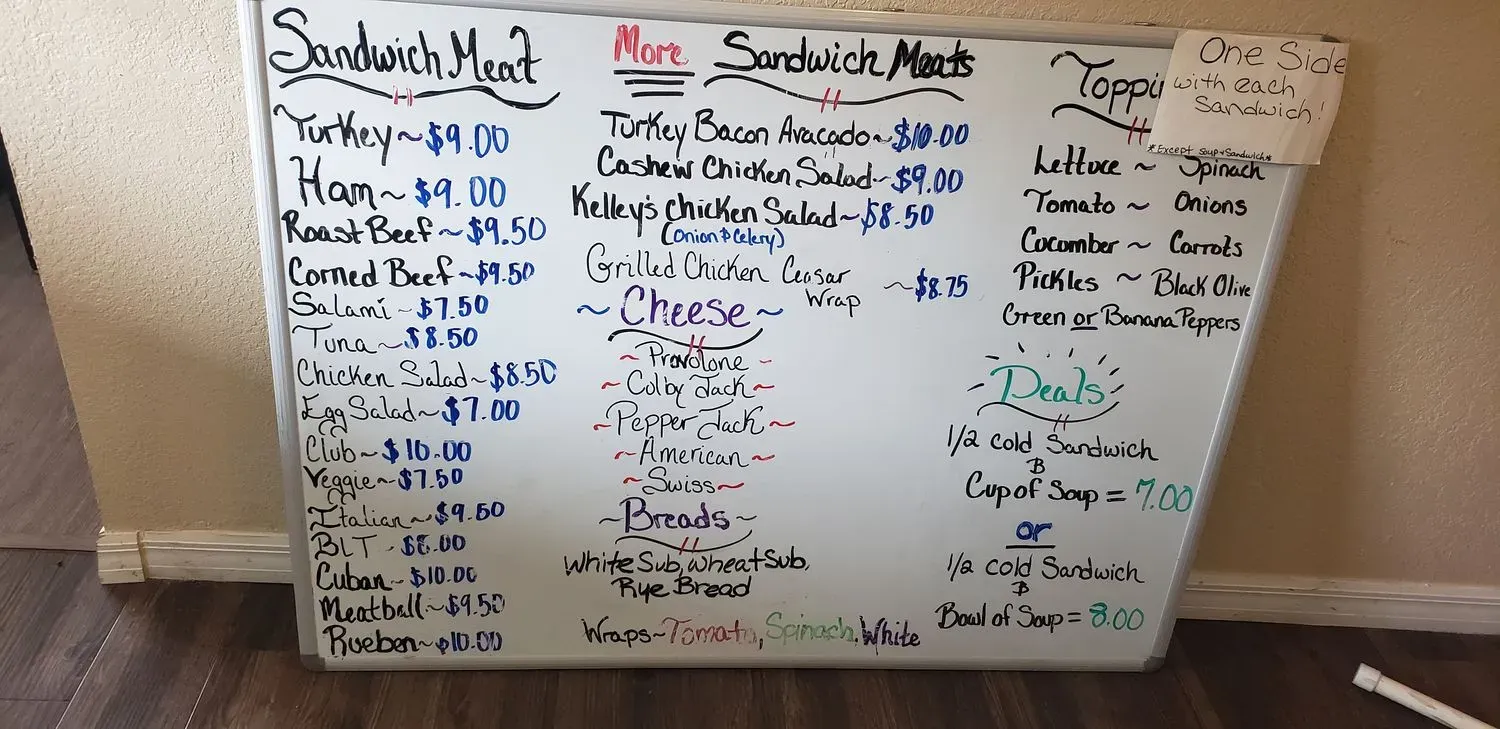 Sandwich Meat
Turkey ~ $9.00
Ham ~ $9.00
Roast Beef ~ $9.50
Corned Beef ~ $9.50
Salami ~ $7.50
Tuna ~ $8.50
Chicken Salad ~ $8.50
Egg Salad ~ $7.00
Club ~ $10.00
Veggie ~ $7.50
Italian ~ $9.50
BLT - $8.00
Cuban ~ $10.00
Meatball ~ $9.50
Rueben ~ $10.00
More Sandwich Meats
Turkey Bacon Avacado ~ $10.00
Cashew Chicken Salad ~ $9.00
Kelley's Chicken Salad ~ $8.50
(Onion & Celery)
Grilled Chicken Ceasar
Wrap ~ $8.75
~ Cheese ~
~ Provolone ~
~ Colby Jack ~
~ Pepper Jack ~
~ American ~
~ Swiss ~
~ Breads ~
White Sub, Wheat Sub,
Rye Bread
Wraps ~ Tomato, Spinach, White
Toppi
One Side
with each
Sandwich!
*Except Soup & Sandwich*
Lettuce ~ Spinach
Tomato ~ Onions
Cucomber ~ Carrots
Pickles ~ Black Olive
Green or Banana Peppers
Deals
1/2 cold Sandwich
&
Cup of Soup = 7.00
or
1/2 cold Sandwich
&
Bowl of Soup = 8.00